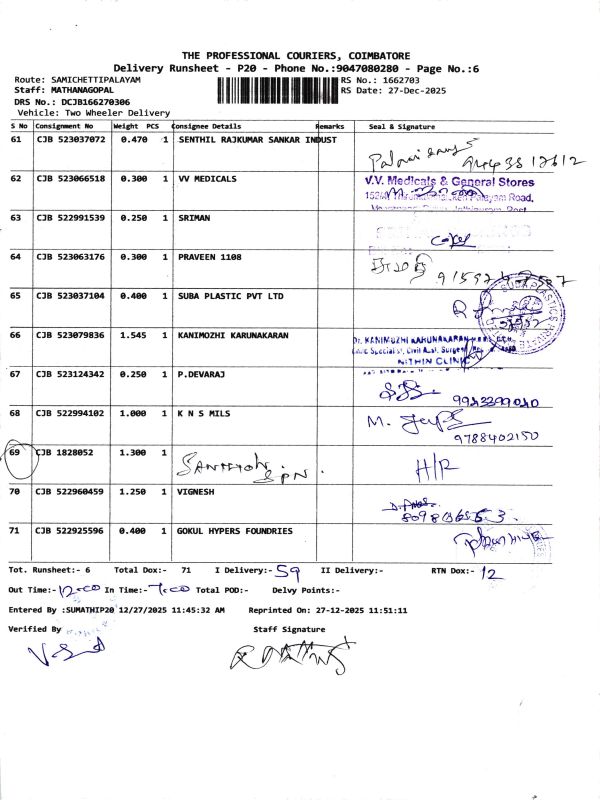 THE PROFESSIONAL COURIERS, COIMBATORE
Delivery Runsheet - P20 - Phone No.:9047080280 - Page No.:6
Route: SAMICHETTIPALAYAM RS No.: 1662703
Staff: MATHANAGOPAL RS Date: 27-Dec-2025
DRS No.: DCJB166270306
Vehicle: Two Wheeler Delivery
S No Consignment No Weight PCS Consignee Details Remarks Seal & Signature
61 CJB 523037072 0.470 1 SENTHIL RAJKUMAR SANKAR INDUST
62 CJB 523066518 0.300 1 VV MEDICALS V.V. Medicals & General Stores
Road,
63 CJB 522991539 0.250 1 SRIMAN
64 CJB 523063176 0.300 1 PRAVEEN 1108
65 CJB 523037104 0.400 1 SUBA PLASTIC PVT LTD
66 CJB 523079836 1.545 1 KANIMOZHI KARUNAKARAN Dr. KANIMOZHI KARUNAKARAN
NITHIN CLINIC
67 CJB 523124342 0.250 1 P.DEVARAJ
68 CJB 522994102 1.000 1 K N S MILS M.
9788402150
69 CJB 1828052 1.300 1 H/R
70 CJB 522960459 1.250 1 VIGNESH
71 CJB 522925596 0.400 1 GOKUL HYPERS FOUNDRIES
Tot. Runsheet:- 6 Total Dox:- 71 I Delivery:- 59 II Delivery:- RTN Dox:- 12
Out Time:- 12-00 In Time:- 7-00 Total POD:- Delvy Points:-
Entered By :SUMATHIP20 12/27/2025 11:45:32 AM Reprinted On: 27-12-2025 11:51:11
Verified By Staff Signature